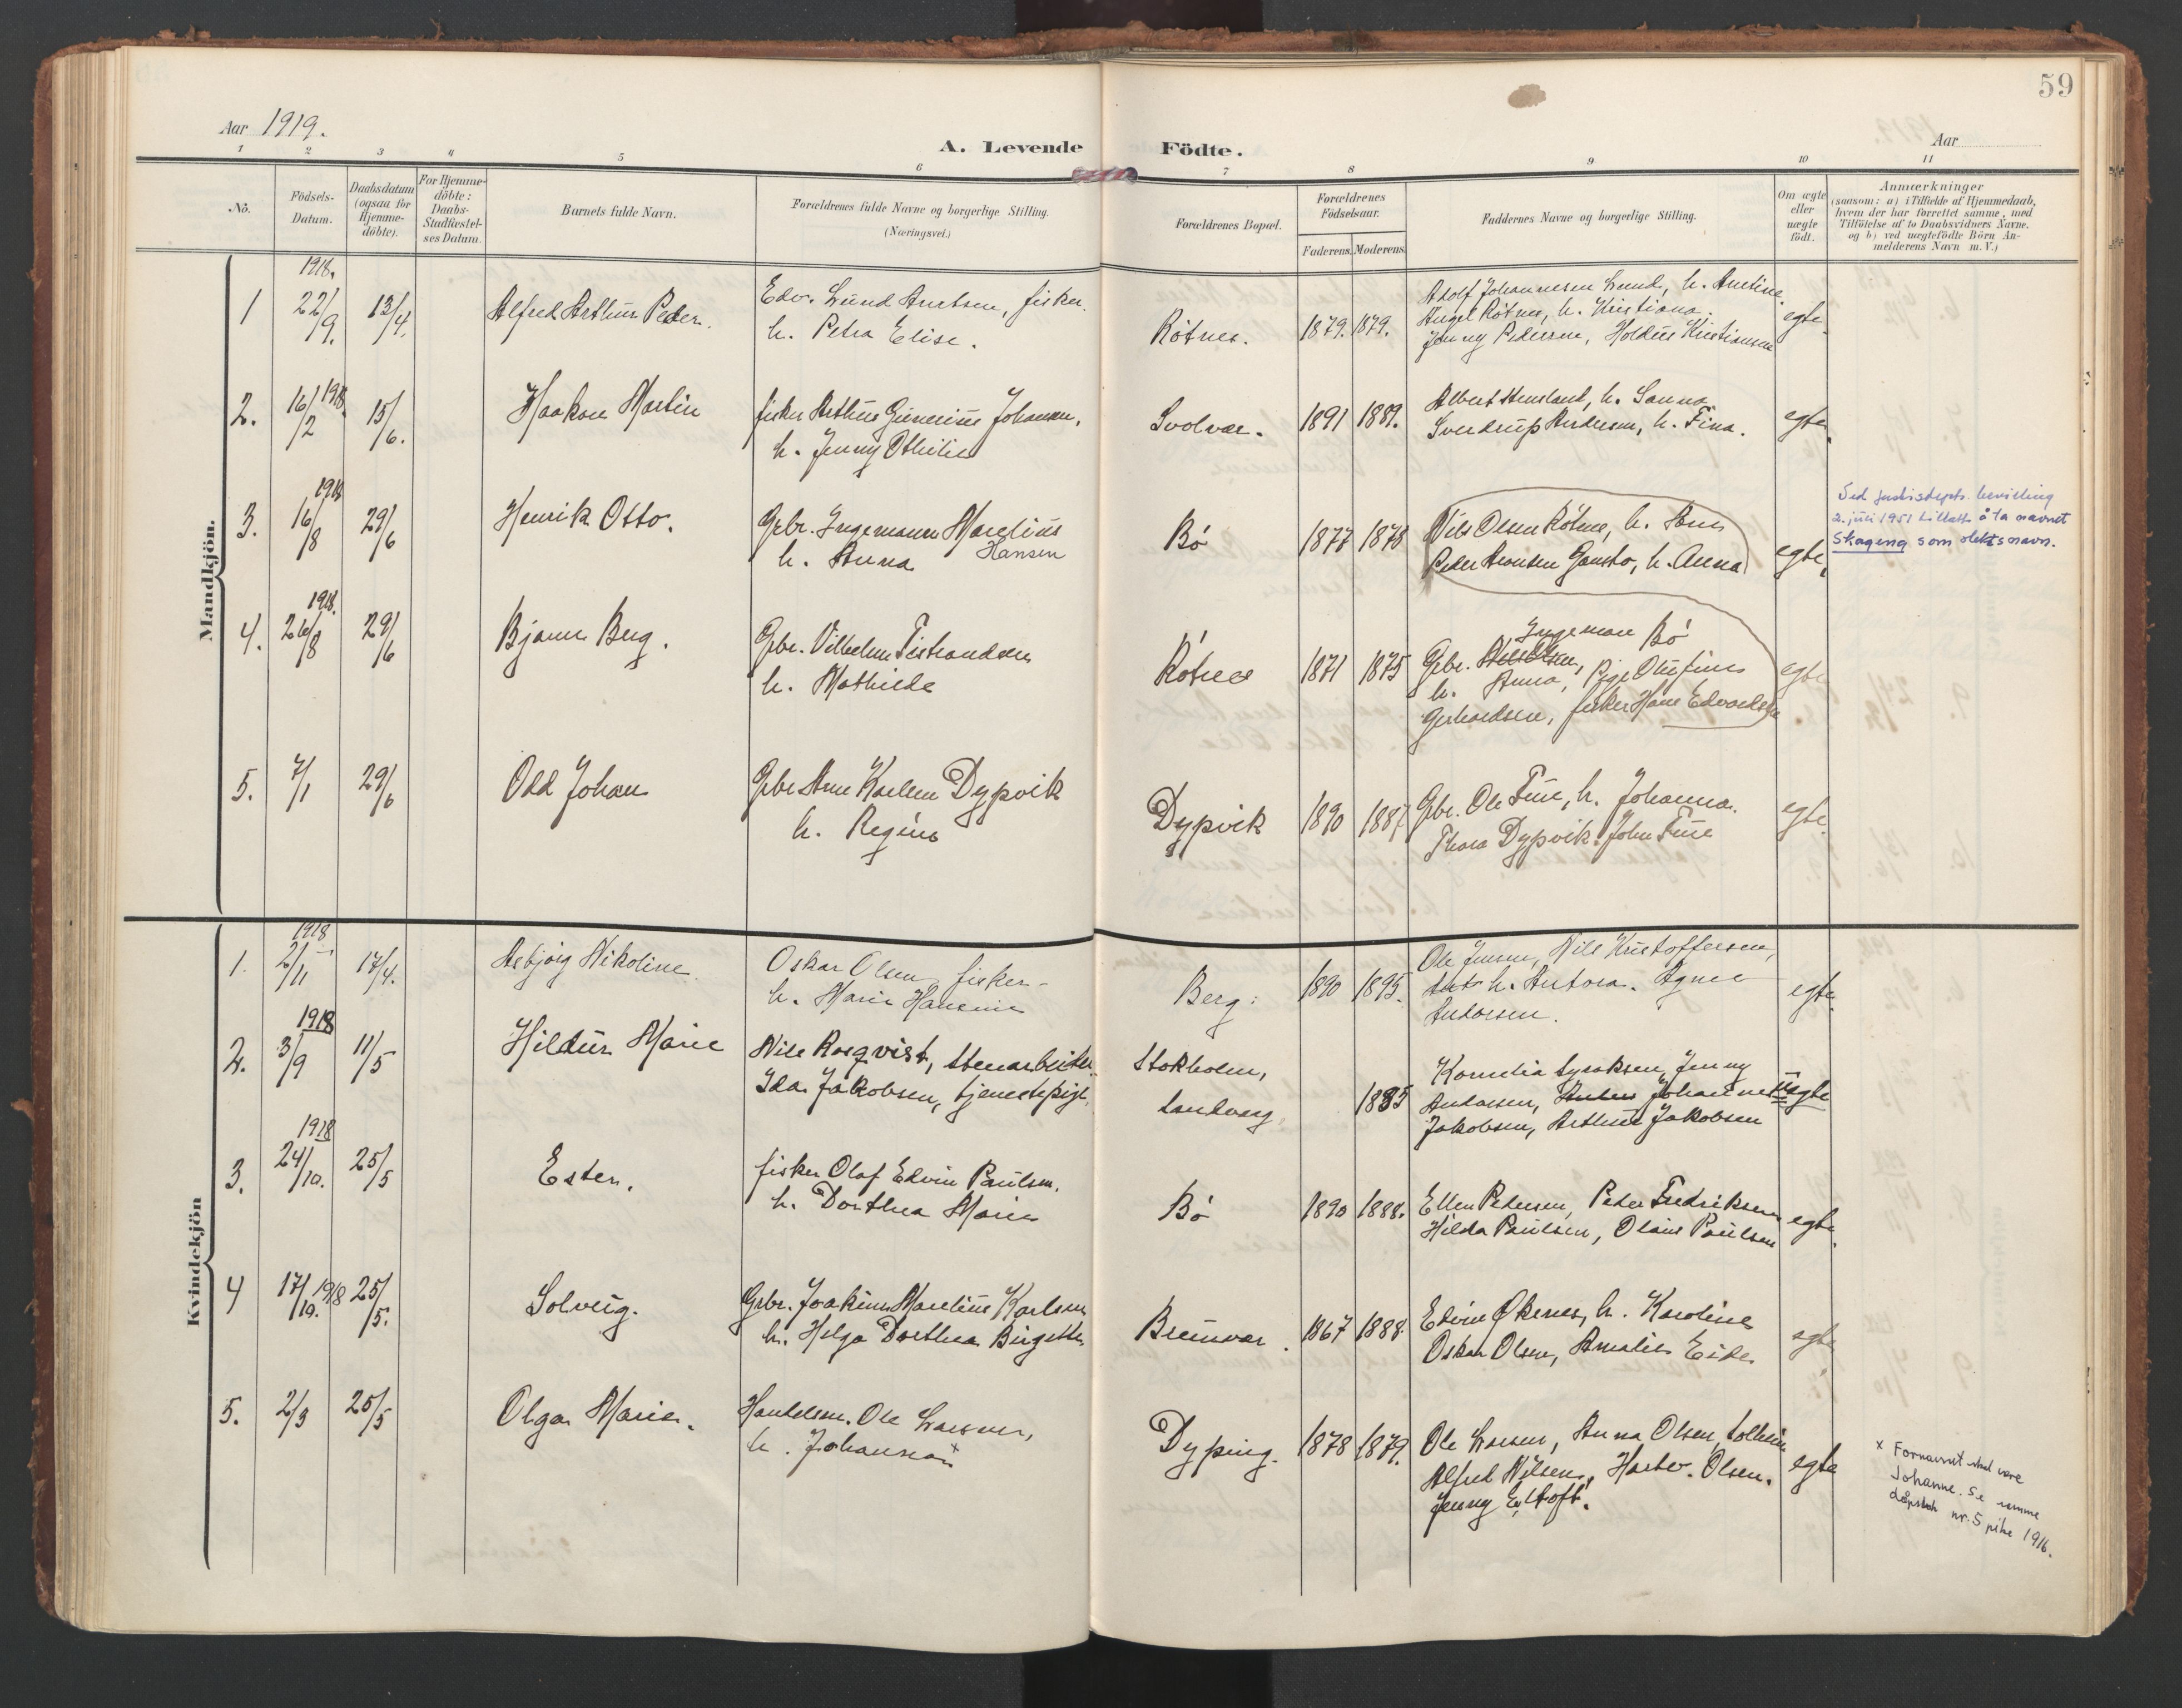 59
Aar 1919.
Aar
A. Levende Födte.
1 2 3 4 5 6 7 8 9 10 11
No.
Födsels-Datum.
Daabsdatum (ogsaa for Hjemme-döbte).
For Hjemme-döbte: Daabs-Stadfæstel-ses Datum.
Barnets fulde Navn.
Forældrenes fulde Navne og borgerlige Stilling.
(Næringsvei.)
Forældrenes Bopæl.
Forældrenes Födselsaar.
Faderens. Moderens.
Faddernes Navne og borgerlige Stilling.
Om ægte eller uægte födt.
Anmærkninger
(saasom: a) i Tilfælde af Hjemmedaab,
hvem der har forrettet samme, med
Tilföielse af to Daabsvidners Navne.
og b) ved uægtefödte Börn An-
melderens Navn m.V.)
Mandkjön.
1 1918. 22/9. 13/4. Alfred Arthur Peder.
Edv. Lund Arntsen, fisker.
h. Petra Elise.
Rötnes. 1879. 1879.
Adolf Johannesen Lund, h. Antine.
Angel Rötnes, h. Kristiana.
Jenny Pedersen, Holdus Kristiansen
egte.
2. 16/2 1918. 15/6. Haakon Martin
fisker Arthur Johansen,
h. Jenny Othilie
Svolvær. 1891 1889.
Albert h. Sanna
Sverdrup Andersen, h. Fina.
egte.
3. 1918 16/8 29/6 Henrik Otto.
Grbr. Ingemann Marelius
h. Anna Hansen
Bö 1877 1878
Nils Olsen Rötnes, h.
Peder Arontsen h. Anna
egte,
Ved justisdepts. bevilling
2. juli 1951 tillatt å ta navnet
Skageng som slektsnavn.
4. 1918. 26/8 29/6 Bjarne Berg.
Grbr. Vilhelm Tistrandsen
h. Mathilde
Rötnes 1871 1875
Ingeman Bö
Grbr. Nils Olsen,
h. Anna, pige Olufine
Gerhardsen, fisker Hans Edvardsen
egte
5. 7/1 29/6 Odd Johan
Grbr Arne Karlsen Dypvik
h. Regine
Dypvik 1890 1887
Grbr. Ole Fure, h. Johanna.
Thora Dypvik, John Fure
egte.
Kvindekjön
1. 1918 2/11 17/4. Asbjörg Nikoline
Oskar Olsen, fisker-
h. Marie Hansine
Berg. 1890 1895.
Ole Jensen, Nils Kristoffersen,
h. Antora. Agnes
Andorsen.
egte.
2. 1918 3/9 11/5 Hildur Marie
Nils Rosqvist, stenarbeider.
Ida Jakobsen, tjenestepige.
Stokholm,
Sandvaag, 1885
Kornelia Syvaksen, Jenny
Andorsen, Johannes
Jakobsen, Arthur Jakobsen
uegte
3. 1918 24/10. 25/5 Ester.
fisker Olaf Edvin Paulsen.
h. Dorthea Marie
Bö 1890 1888.
Ellen Pedersen, Peder Fredriksen
Hilda Paulsen, Olaus Paulsen
egte.
4 17/10. 1918 25/5. Solveig.
Grbr. Joakim Marelius Karlsen
h. Helga Dorthea Birgette
Breivær. 1867 1888.
Edvin Økenes, h. Karoline
Oskar Olsen, Amalie Eide
egte
5. 2/3 25/5 Olga Marie.
Handelsm. Ole Larsen,
h. Johanna x
Dyping. 1878 1879.
Ole Larsen, Anna Olsen, Solheim
Alfred Nilsen, Hartv. Olsen.
Jenny Eltoft.
egte
x Fornavnet skal være
Johanne. Se samme
dåpsbok nr. 5 pike 1916.